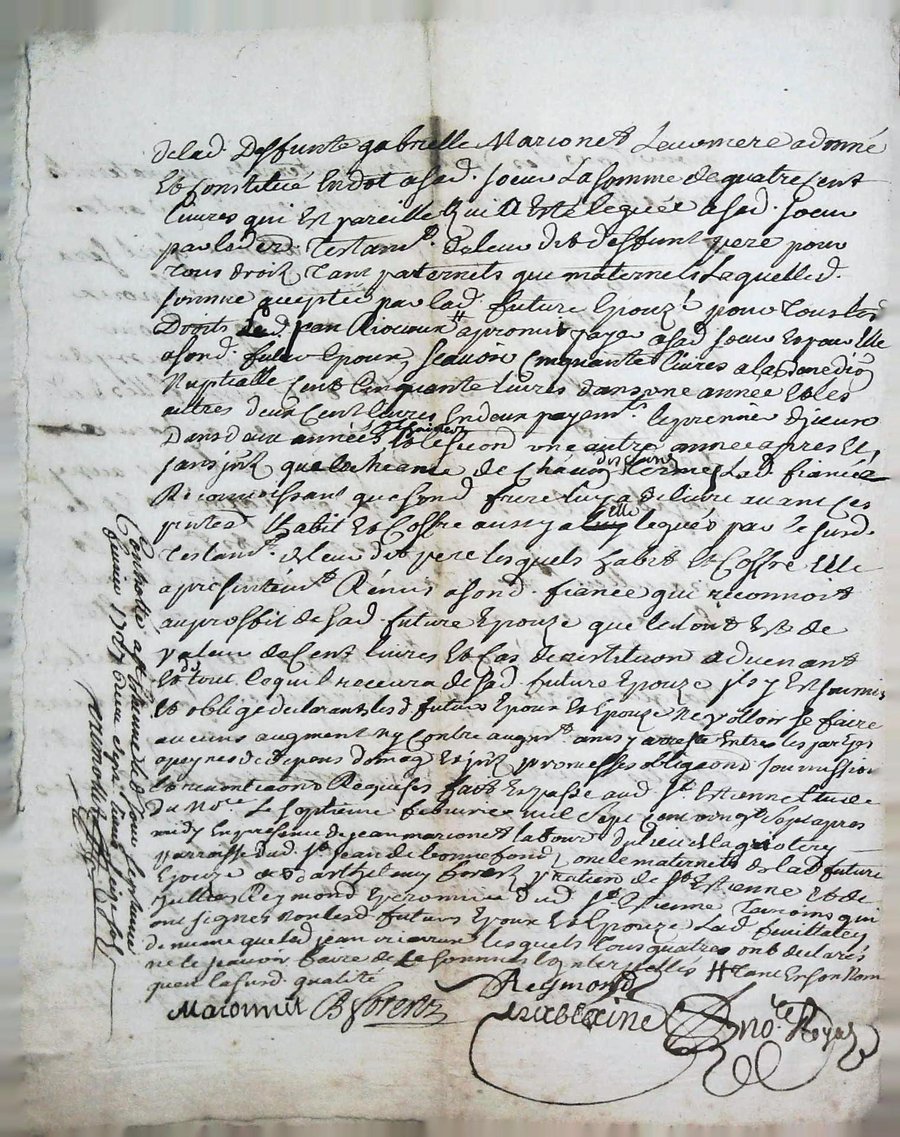 delad. deffunte gabrielle Marionet Leur mere a donné
Et Constitué En dot a sad. soeur La somme de quatre Cent
livres qui Est pareille qui a Esté leguée a sad. soeur
par le dernier Testamt. de leur dit deffunt pere pour
tous droits tant paternels que maternels Laquelle d.
somme aceptée par lad. future Epouze pour tous ses
Droits Led. jean Rioux # a promis paye a sad. soeur Espouzelle
a sond. futur Epoux, scavoir Cinquante livres a la benediõn
Nuptialle Cent Cinquante livres dans une année Et les
autres deux Cent livres En deux payemts. le premier diceux
Dans deux années Et le second une autre annee apres Et
jusques a lecheance de chacun desdits termes Lad. fiancée
Reconnoissant que sond. frere luy a delivre avant ces
pntes. habit Et Coffre aussy a elle legués par le susd.
Testamt. de leur dit pere lesquels habit Et Coffre Elle
a presentemt. Remis a sond. fiancé qui reconnoit
au proffit de sad. future Epouze que le tout Est de
Valeur de Cent livres Et Cas de restitution advenant
Et de tout Ce quil recevra de sad. future Epouze jl sy Est soumis
Et obligé declarant lesd. futurs Epoux Et Epouze Ne volloir se faire
aucuns augment ny Contre augmt. ainsy arresté Entre les parties
a peynes de depens domag Et jnts. promesses obligaons soumission
Renontiaons Requises fait Et passé aud. St. Estienne Etude
du Nore. Le septieme febvrier mil sept cent vingt sept apres
midy En presence de jean marionet labour. du lieu de
parroisse dud. St. jean de bonnefond, oncle maternel de lad. future
Epouze Barthelemy forest praticien de St. Estienne Et de
Reymond dud. St. Estienne Temoins qui
ont signés Non lesd. futurs Epoux Et Epouze Lad.
de mesme que led. jean rioux lesquels tous quatres ont declarés
ne le scavoir faire de Ce sommés Et Interpellés # tant En son Nom
quen la susd. qualité
Reymond
Marionnet B forest nore. Royal
Controllé a St Etienne le
fevrier 1727 Receu